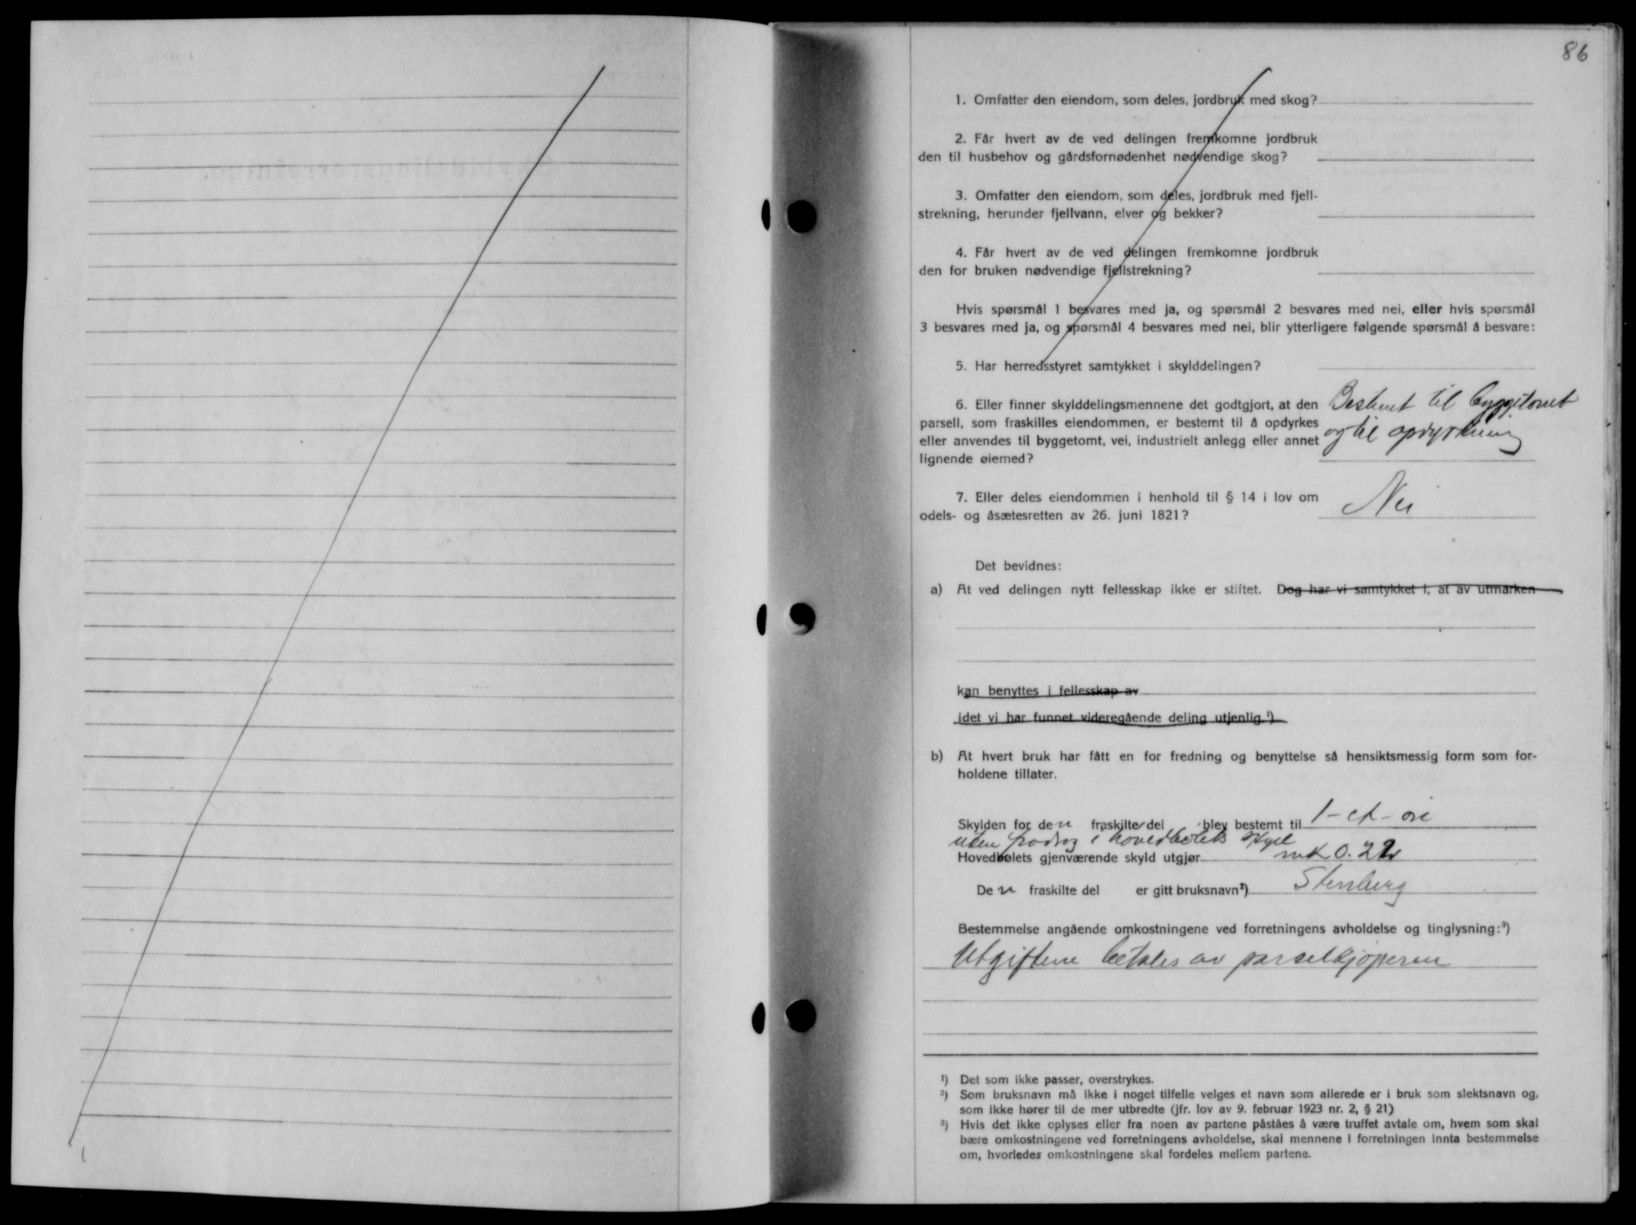 86
1. Omfatter den eiendom, som deles, jordbruk med skog?
2. Får hvert av de ved delingen fremkomne jordbruk
den til husbehov og gårdsfornødenhet nødvendige skog?
3. Omfatter den eiendom, som deles, jordbruk med fjell-
strekning, herunder fjellvann, elver og bekker?
4. Får hvert av de ved delingen fremkomne jordbruk
den for bruken nødvendige fjellstrekning?
Hvis spørsmål 1 besvares med ja, og spørsmål 2 besvares med nei, eller hvis spørsmål
3 besvares med ja, og spørsmål 4 besvares med nei, blir ytterligere følgende spørsmål å besvare:
5. Har herredsstyret samtykket i skylddelingen?
6. Eller finner skylddelingsmennene det godtgjort, at den Bestemt til byggetomt
parsell, som fraskilles eiendommen, er bestemt til å opdyrkes
eller anvendes til byggetomt, vei, industrielt anlegg eller annet og til opdyrkning
lignende øiemed?
7. Eller deles eiendommen i henhold til § 14 i lov om
odels- og åsætesretten av 26. juni 1821? Nei
Det bevidnes:
a) At ved delingen nytt fellesskap ikke er stiftet. Dog har vi samtykket i, at av utmarken
kan benyttes i fellesskap av
idet vi har funnet videregående deling utjenlig.¹)
b) At hvert bruk har fått en for fredning og benyttelse så hensiktsmessig form som for-
holdene tillater.
Skylden for den fraskilte del blev bestemt til 1 - et - øre
uten fradrag i hovedbølets skyld
Hovedbølets gjenværende skyld utgjør mk 0.22
Den fraskilte del er gitt bruksnavn²) Stenberg
Bestemmelse angående omkostningene ved forretningens avholdelse og tinglysning:³)
Utgiftene betales av parselkjøperen
¹) Det som ikke passer, overstrykes.
²) Som bruksnavn må ikke i noget tilfelle velges et navn som allerede er i bruk som slektsnavn og,
som ikke hører til de mer utbredte (jfr. lov av 9. februar 1923 nr. 2, § 21)
³) Hvis det ikke oplyses eller fra noen av partene påståes å være truffet avtale om, hvem som skal
bære omkostningene ved forretningens avholdelse, skal mennene i forretningen innta bestemmelse
om, hvorledes omkostningene skal fordeles mellem partene.